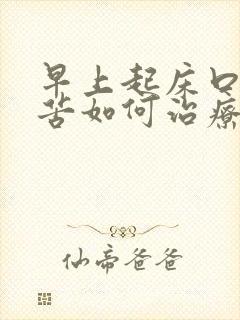 早上起床口
苦如何治療
仙帝爸爸